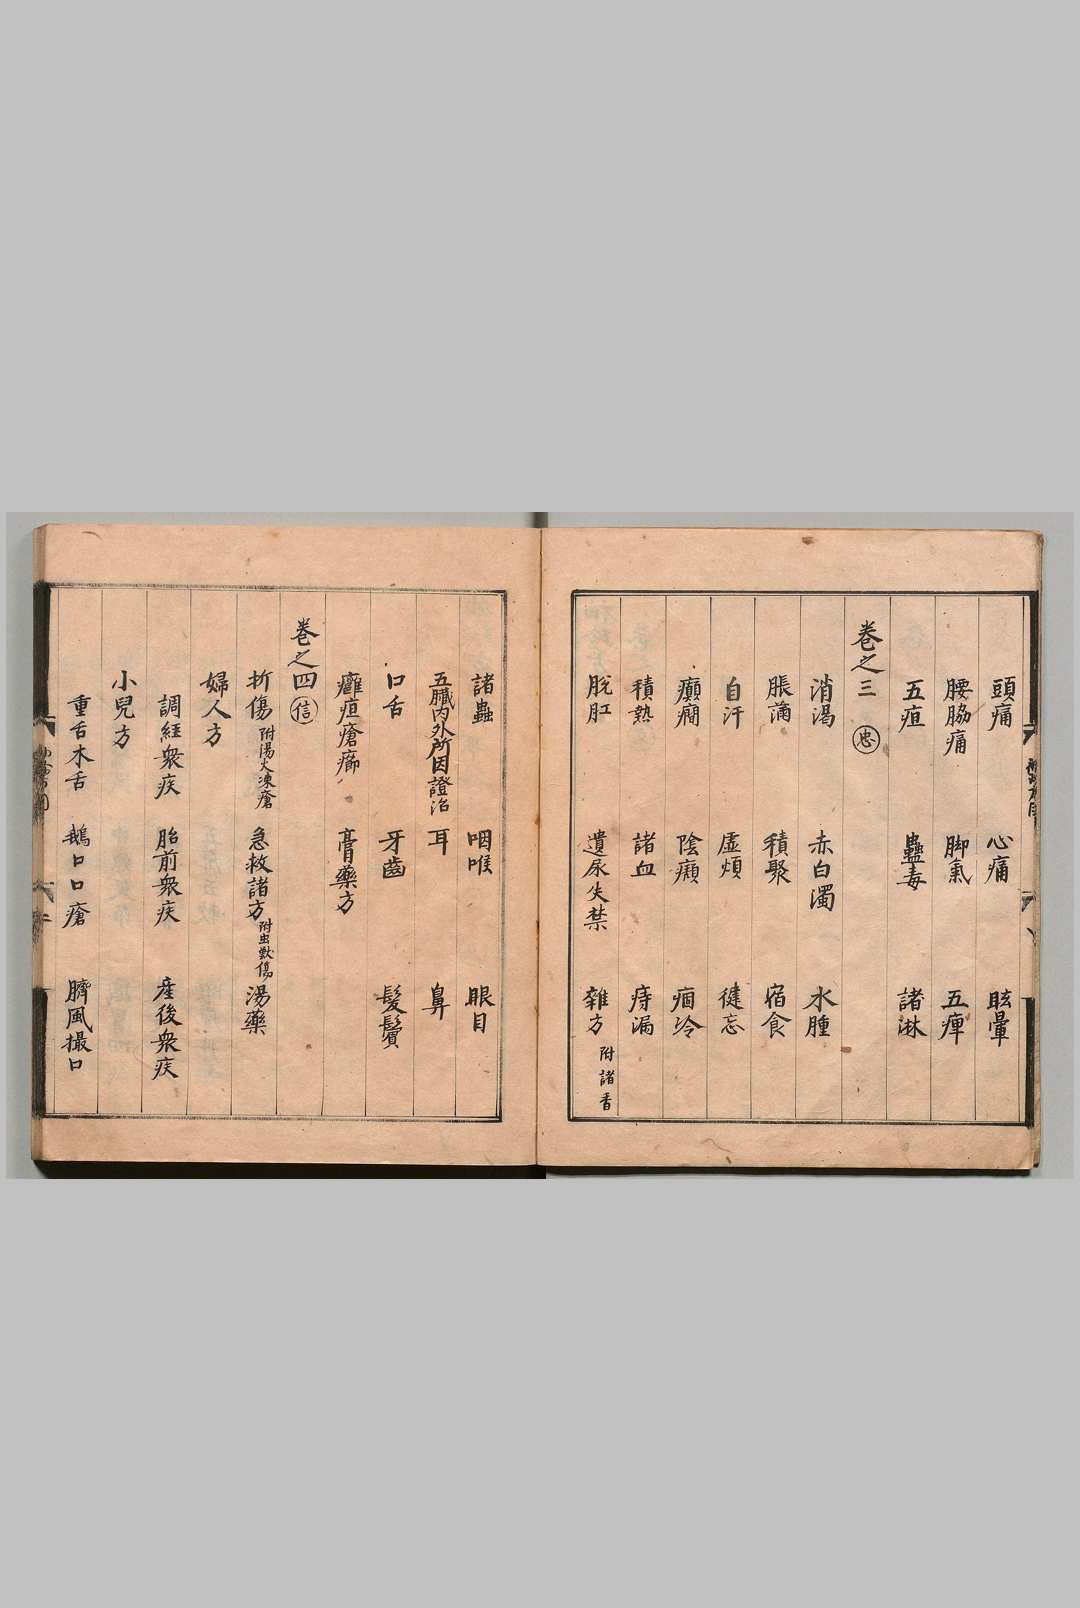 頭痛 心痛 眩暈
腰脇痛 脚氣 五痺
五疸 蠱毒 諸淋
卷之三 忠
消渴 赤白濁 水腫
脹滿 積聚 宿食
自汗 虛煩 健忘
癲癇 陰癩 痼冷
積熱 諸血 痔漏
脫肛 遺尿失禁 雜方 附諸香
諸蟲 咽喉 眼目
五臟內外所因證治 耳 鼻
口舌 牙齒 髮鬢
癰疽瘡癤 膏藥方
卷之四 信
折傷 附湯火凍瘡 急救諸方 附虫獸傷 湯藥
婦人方
調経衆疾 胎前衆疾 産後衆疾
小兒方
重舌木舌 鵝口口瘡 臍風撮口